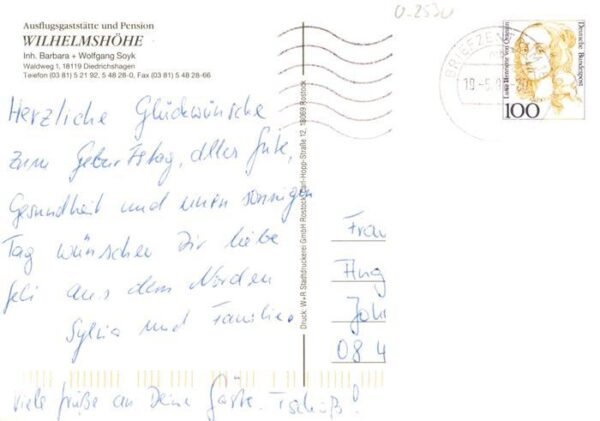 Ausflugsgaststätte und Pension
WILHELMSHÖHE
Inh. Barbara + Wolfgang Soyk
Waldweg 1, 18119 Diedrichshagen
Telefon (03 81) 5 21 92, 5 48 28-0, Fax (03 81) 5 48 28-66
Herzliche Glückwünsche
zum Geburtstag, alles Gute,
Gesundheit und einen sonnigen
Tag wünschen Dir liebe
aus dem Norden
Sylvia und Familie.
Viele Grüße an Deine Gäste. Tschüß!
Druck: W+R Stadtdruckerei GmbH Rostock, Carl-Hopp-Straße 12, 18069 Rostock
Deutsche Bundespost
100
BRIEFZE
Frau
Ang
Joh
084